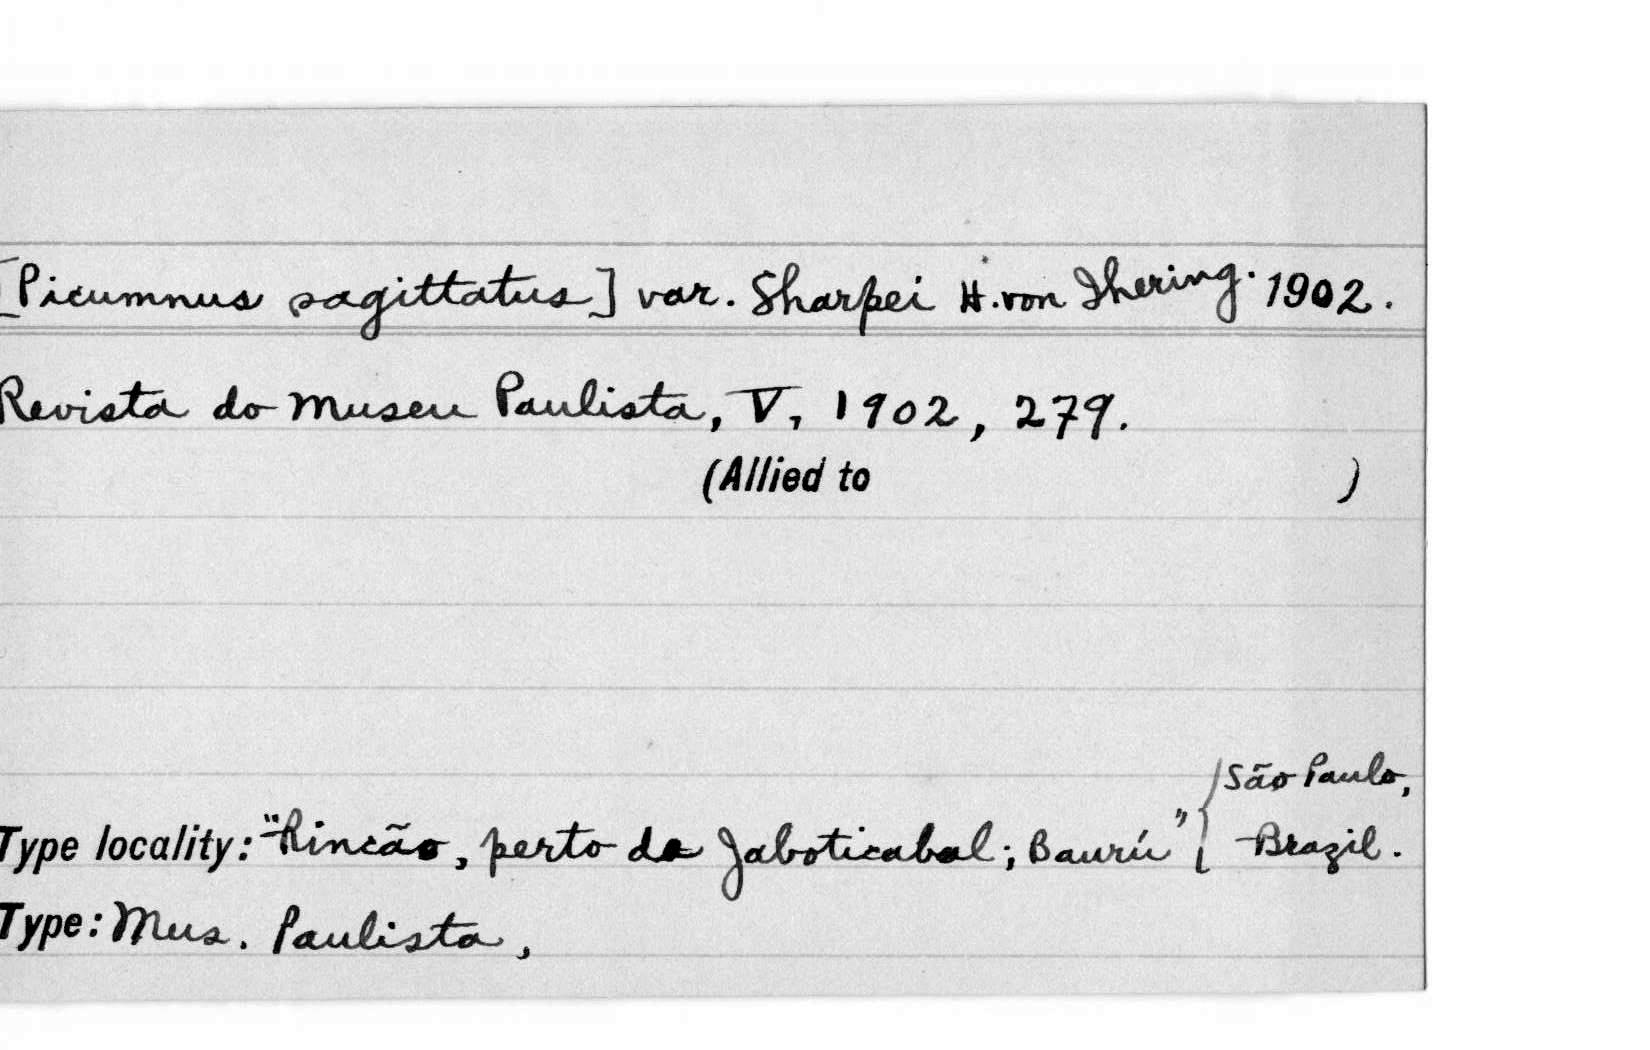 [Picumnus sagittatus] var. Sharpei H. von Ihering. 1902.
Revista do Museu Paulista, V, 1902, 279.
(Allied to )
São Paulo,
Type locality: "Rincão, perto de Jaboticabal; Baurú" { Brazil.
Type: Mus. Paulista,